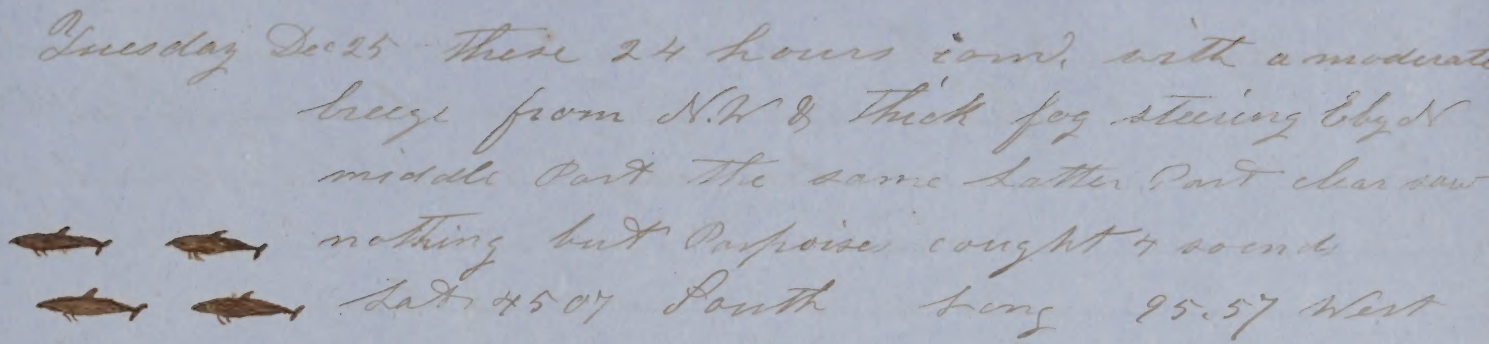 Tuesday Dec 25 these 24 hours comd. with a moderate
breeze from N.W & thick fog steering E by N
middle Part the same Latter Part clear saw
nothing but Porpoise cought 4 so ends
Lat 45 07 South Long 95.57 West